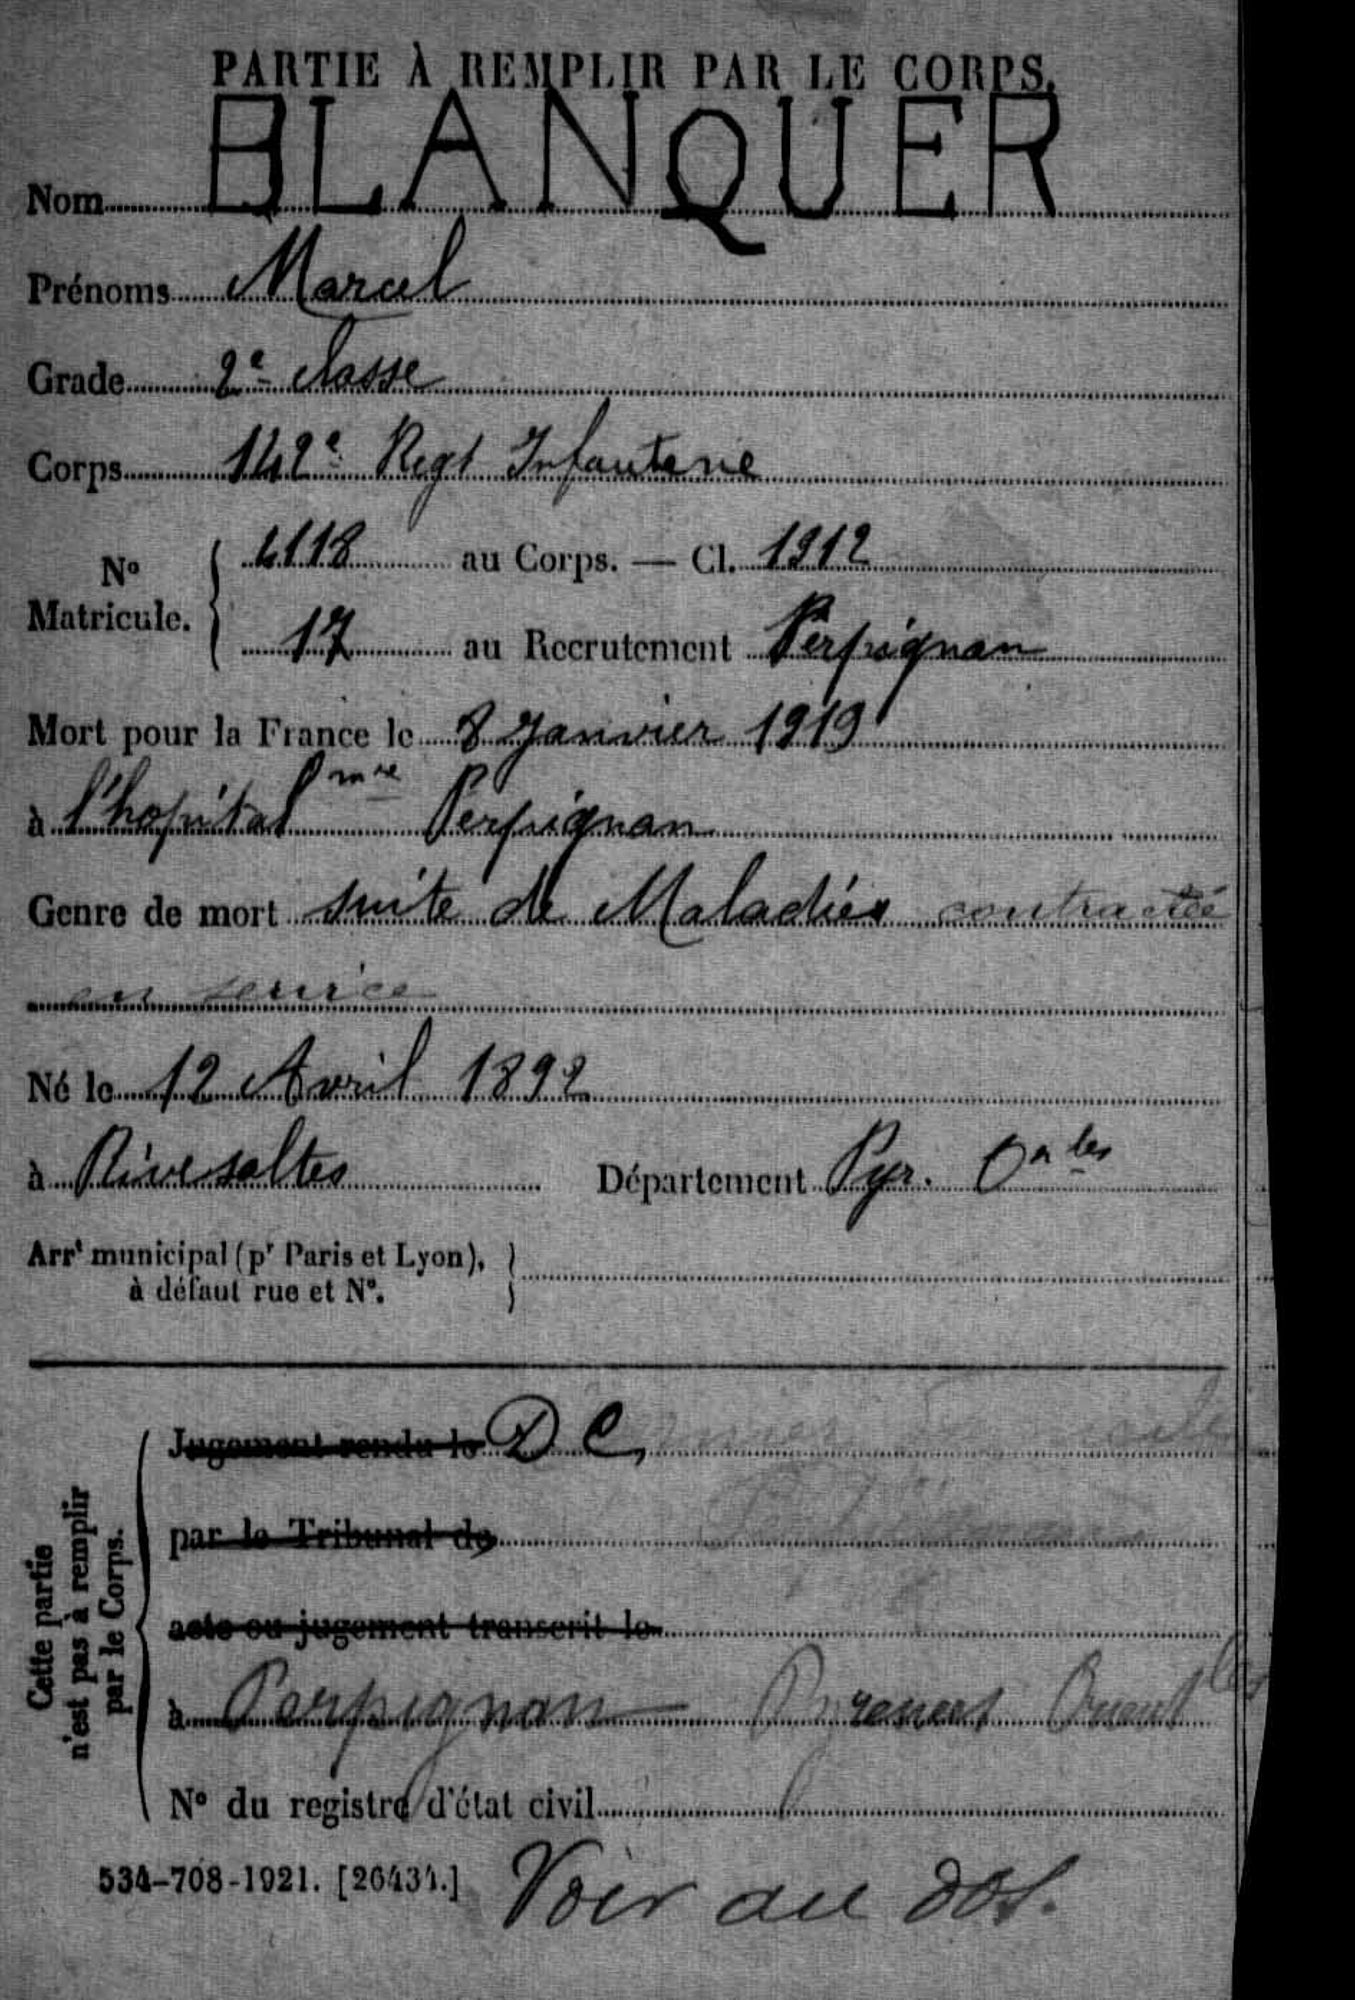 PARTIE À REMPLIR PAR LE CORPS.
Nom BLANQUER
Prénoms Marcel
Grade 2e classe
Corps 142e Regt Infanterie
No Matricule. 4118 au Corps. — Cl. 1912
17 au Recrutement Perpignan
Mort pour la France le 8 Janvier 1919
à l'hopital mre Perpignan
Genre de mort suite de Maladies contractée
en service
Né le 12 Avril 1892
à Rivesaltes Département Pyr. Or les
Arrt municipal (pr Paris et Lyon),
à défaut rue et No.
Cette partie
n'est pas à remplir
par le Corps.
Jugement rendu le D C,
par le Tribunal de
acte ou jugement transcrit le
à Perpignan Pyrenees Orientles
No du registre d'état civil
534-708-1921. [26434.]
Voir au dos.